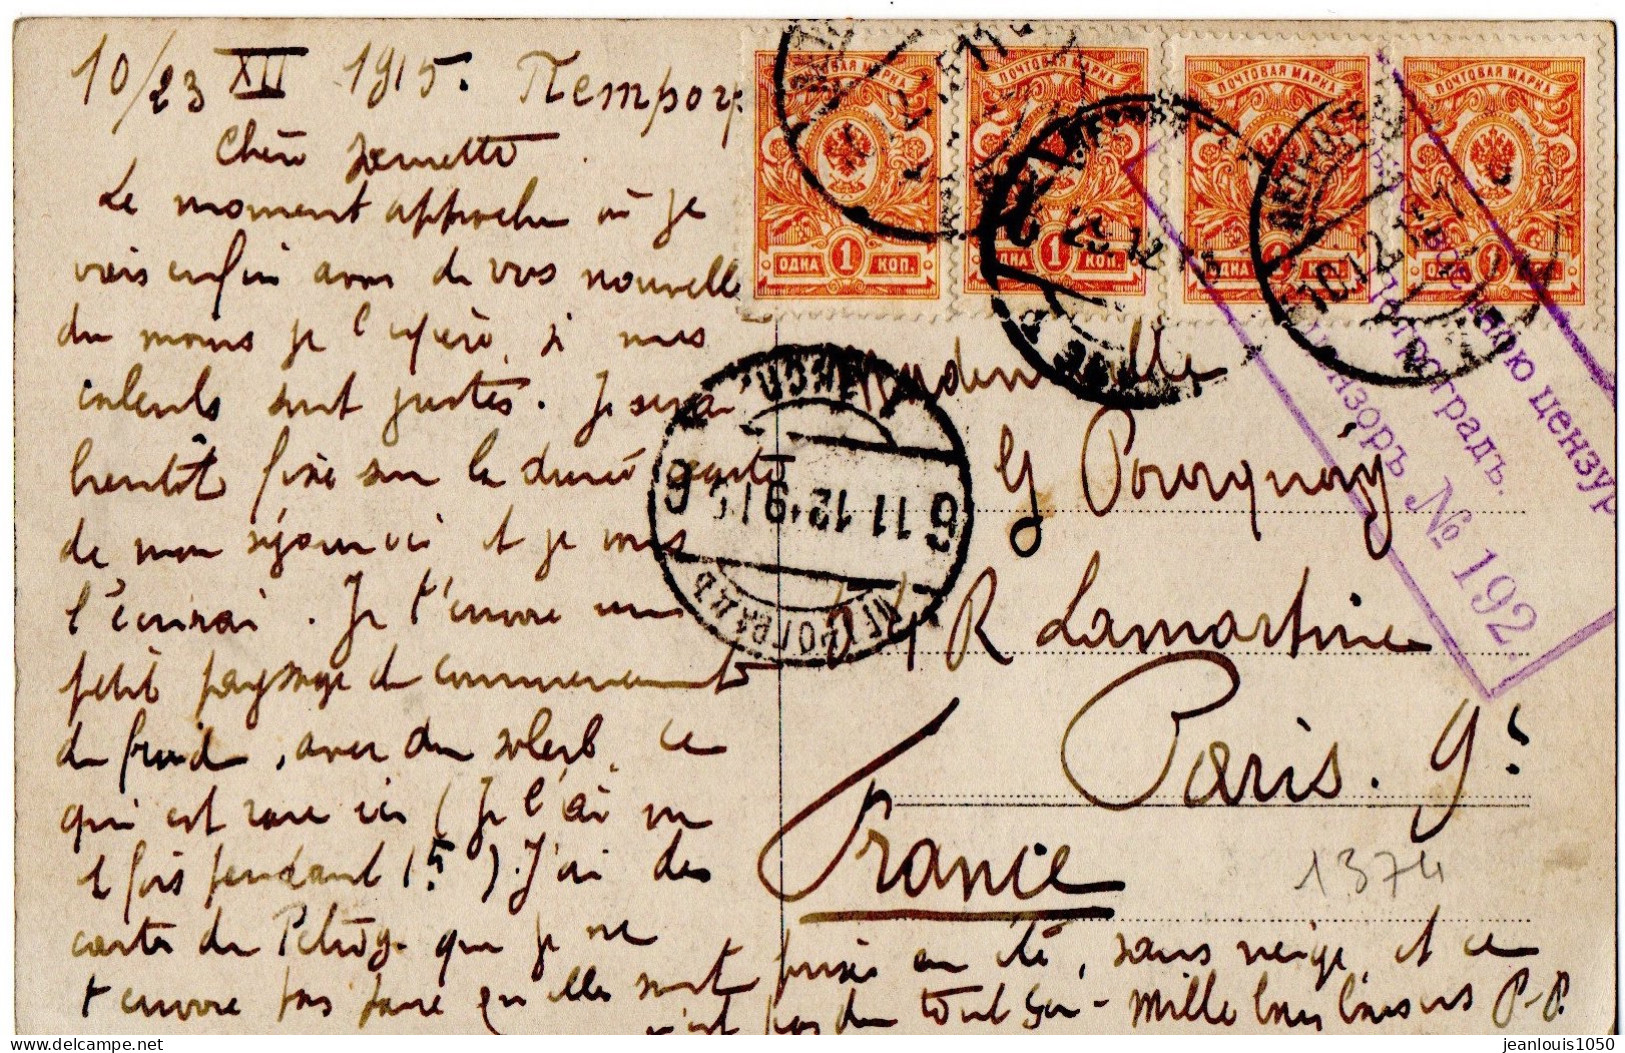 10/23 XII 1915. Петрогр.
Chère
Le moment approche où je
vais enfin avoir de vos nouvelles
du moins je l'espère, si mes
calculs sont justes. Je serai
bientôt fixé sur la durée
de mon séjour ici et je vous
l'écrirai. Je t'envoie un
petit paysage du commencement
du froid, avec du soleil, ce
qui est rare ici (Je l'ai vu
1 fois pendant 15 j). J'ai des
cartes de Pétrog. que je ne
t'envoie pas parce qu'elles sont prises en été, sans neige, et ce
n'est pas du tout ça - Mille bons baisers P-P.
ПОЧТОВАЯ МАРКА
ОДНА 1 КОП.
ПОЧТОВАЯ МАРКА
ОДНА 1 КОП.
ПОЧТОВАЯ МАРКА
1 КОП.
ПОЧТОВАЯ МАРКА
1 КОП.
10.12.15.7
6 11 12 915 6
ПЕТРОГРАДЪ
военною цензур
Петроградъ.
цензоръ № 192.
Mademoiselle
G Pourquoy
R Lamartine
Paris. 9e
France
1374
delcampe.net
jeanlouis1050